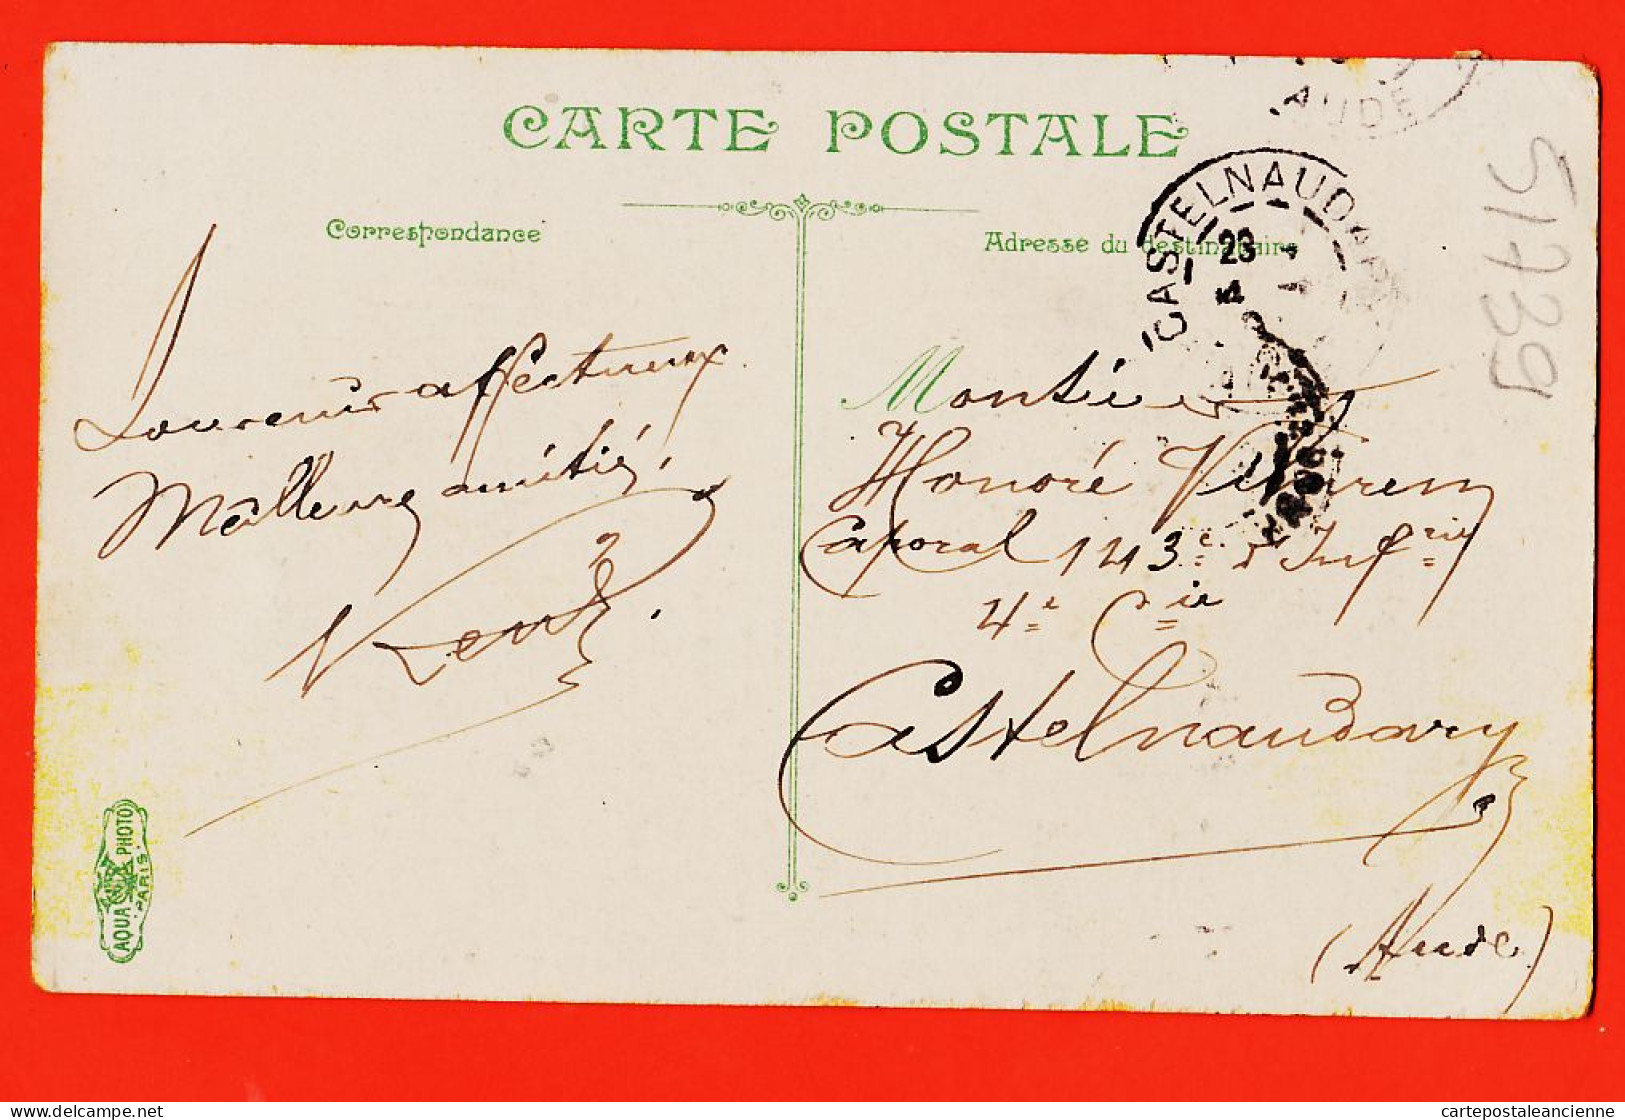 CARTE POSTALE
Correspondance
Adresse du destinataire
AUDE
CASTELNAUDARY
23
4
AUDE
51739
Souvenir affectueux
Meilleure amitié,
Monsieur
Honoré Vilarem
Caporal 143e d'Infrie
4e Cie
Castelnaudary
(Aude)
AQUA PHOTO
PARIS
delcampe.net
cartepostaleancienne